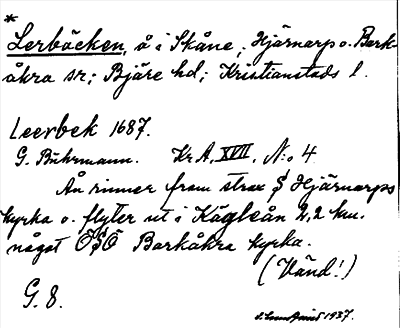 *
Lerbäcken, å i Skåne, Hjärnarp o. Bark-
åkra sr; Bjäre hd; Kristianstads l.
Leerbek 1687.
G. Buhrmann. Kr.A. XVII, N:o 4
Ån rinner fram strax S Hjärnarps
kyrka o. flyter ut i Kägleån 2,2 km.
något ÖSÖ Barkåkra kyrka.
(Vänd!)
G. 8.
1937.